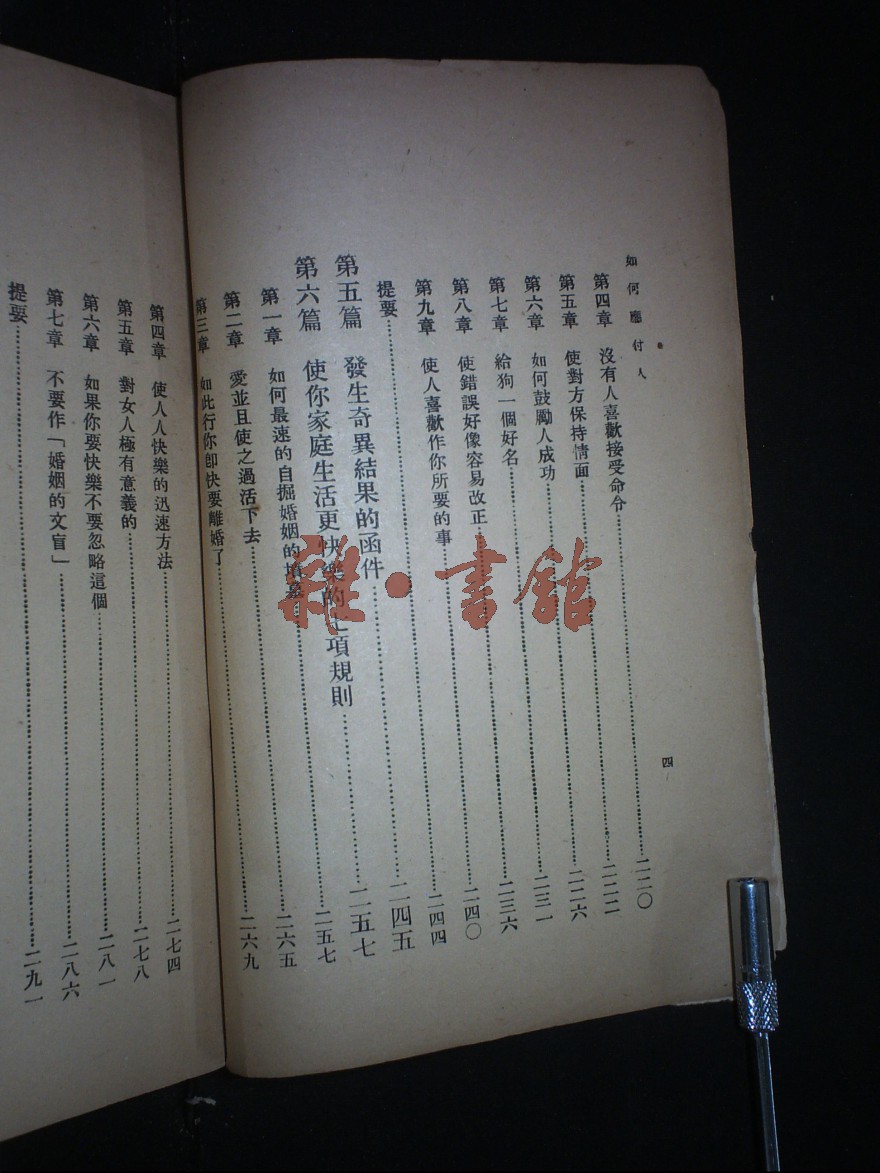 如何應付人
四
第四章 沒有人喜歡接受命令……二二〇
第五章 使對方保持情面……二二二
第六章 如何鼓勵人成功……二二六
第七章 給狗一個好名……二三一
第八章 使錯誤好像容易改正……二三六
第九章 使人喜歡作你所要的事……二四〇
提要……二四四
第五篇 發生奇異結果的函件……二四五
第六篇 使你家庭生活更快樂的七項規則……二五七
第一章 如何最速的自掘婚姻的墳墓……二五七
第二章 愛並且使之過活下去……二六五
第三章 如此行你卽快要離婚了……二六九
第四章 使人人快樂的迅速方法……二七四
第五章 對女人極有意義的……二七八
第六章 如果你要快樂不要忽略這個……二八一
第七章 不要作「婚姻的文盲」……二八六
提要……二九一
雜·書館